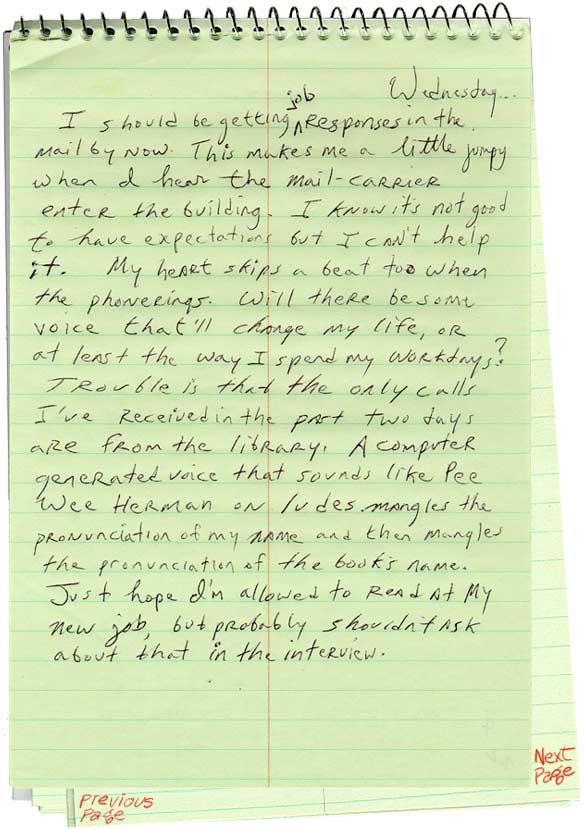 Wednesday...
job
I should be getting ^ responses in the
mail by now. This makes me a little jumpy
when I hear the mail-carrier
enter the building. I know it's not good
to have expectations but I can't help
it. My heart skips a beat too when
the phone rings. Will there be some
voice that'll change my life, or
at least the way I spend my workdays?
Trouble is that the only calls
I've received in the past two days
are from the library. A computer
generated voice that sounds like Pee
Wee Herman on ludes mangles the
pronunciation of my name and then mangles
the pronunciation of the book's name.
Just hope I'm allowed to read at my
new job, but probably shouldn't ask
about that in the interview.
Next
Page
Previous
Page